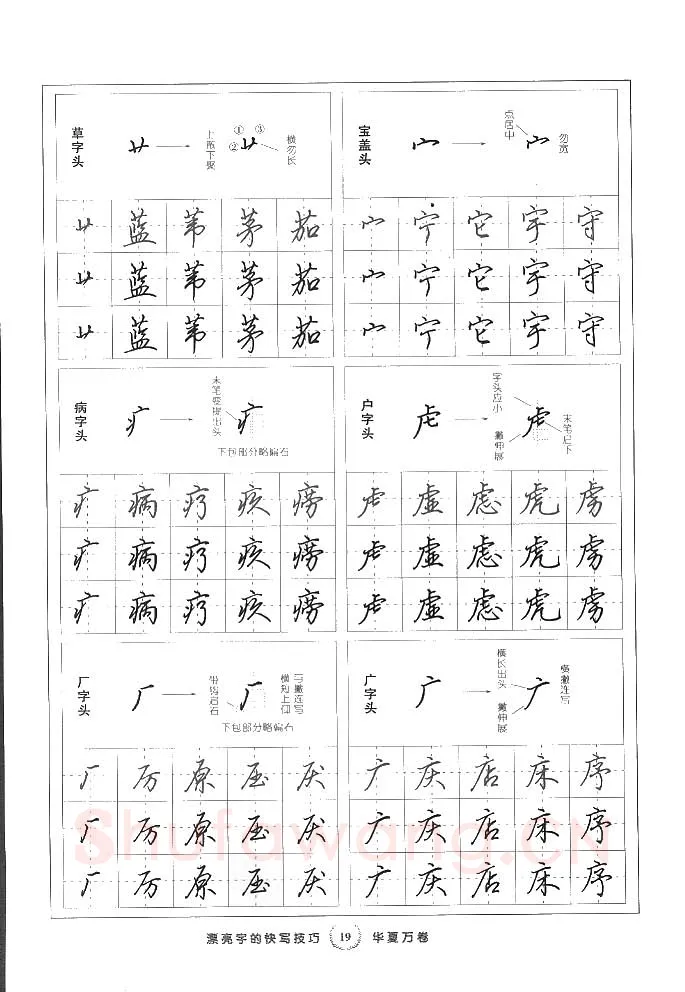 草字头
艹
上散下聚
① ③
②
艹
横勿长
艹 蓝 苇 茅 茄
艹 蓝 苇 茅 茄
艹 蓝 苇 茅 茄
宝盖头
宀
点居中
宀
勿宽
宀 宁 它 宇 守
宀 宁 它 宇 守
宀 宁 它 宇 守
病字头
疒
末笔变提出头
疒
下包部分略偏右
疒 病 疗 疾 痨
疒 病 疗 疾 痨
疒 病 疗 疾 痨
户字头
虍
字头应小
撇伸展
虍
末笔启下
虍 虚 虑 虎 虏
虍 虚 虑 虎 虏
虍 虚 虑 虎 虏
厂字头
厂
带钩启右
厂
横短上仰
与撇连写
下包部分略偏右
厂 厉 原 压 厌
厂 厉 原 压 厌
厂 厉 原 压 厌
广字头
广
横长出头
撇伸展
广
横撇连写
广 庆 店 床 序
广 庆 店 床 序
广 庆 店 床 序
Shufawang.CN
漂亮字的快写技巧 19 华夏万卷